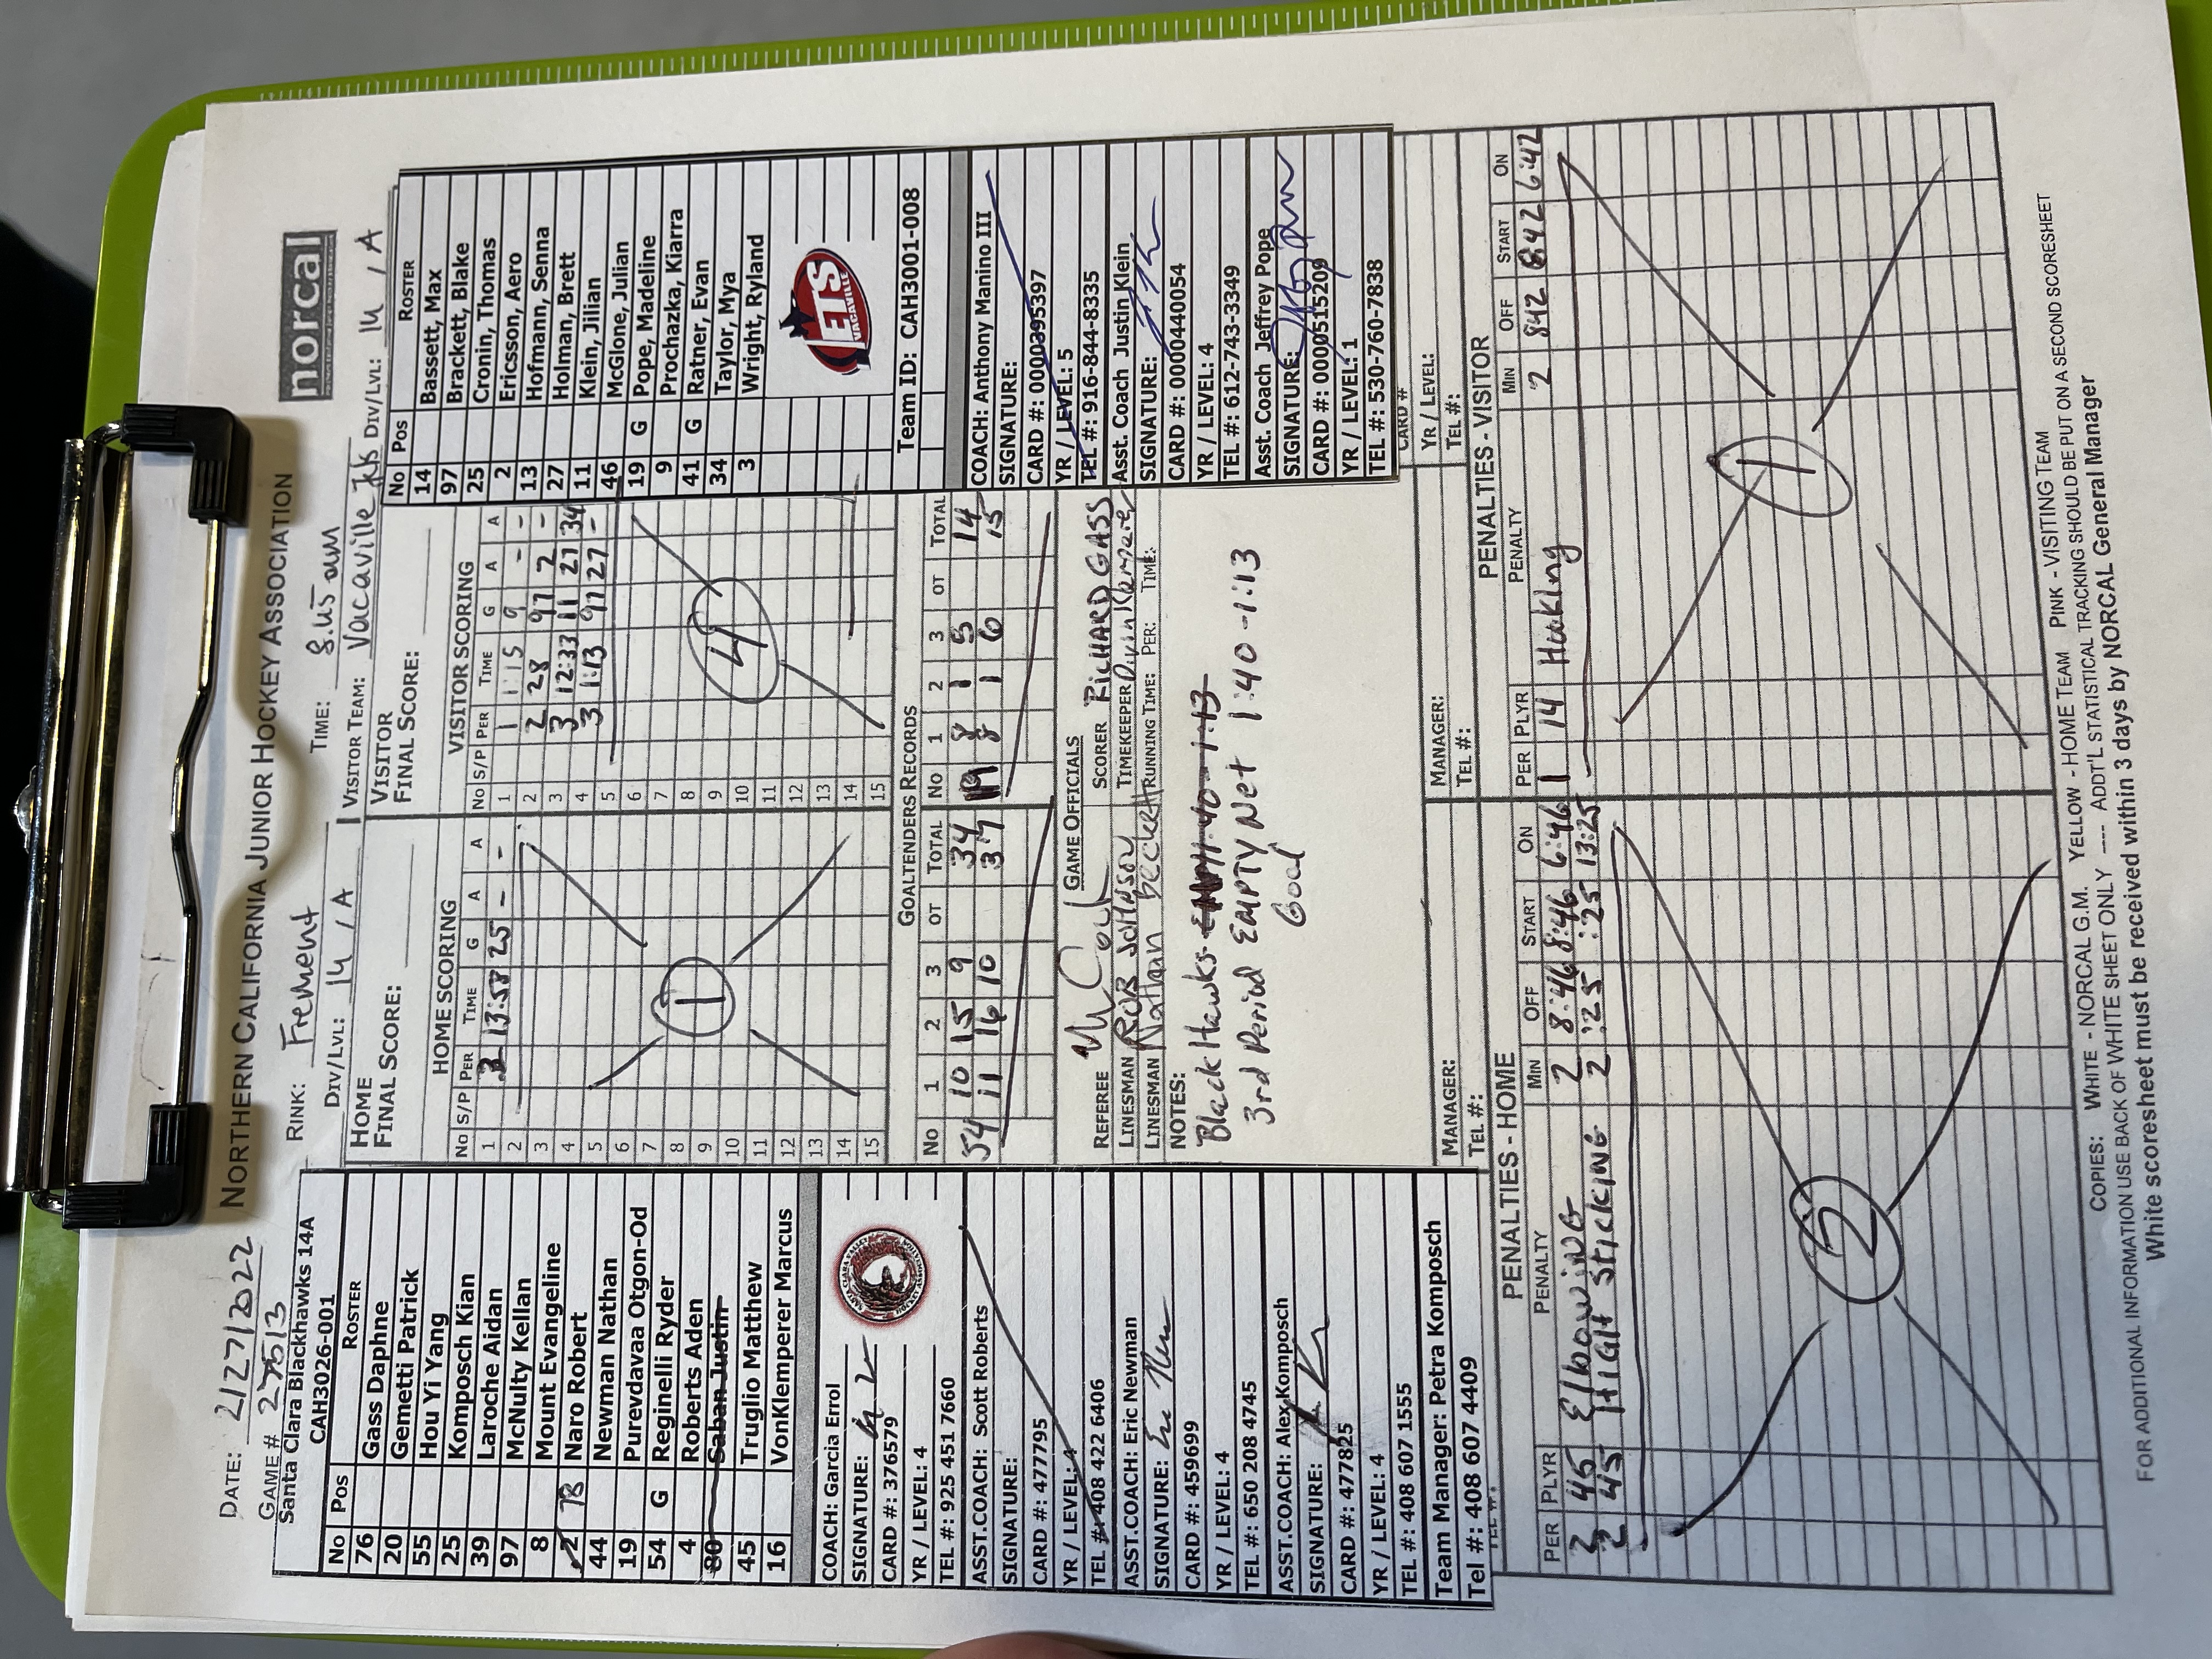 NORTHERN CALIFORNIA JUNIOR HOCKEY ASSOCIATION
norcal
DATE: 2/27/2022
RINK: Frement
TIME: 8:15 am
GAME #
DIV/LVL: 14 / A
VISITOR TEAM: Vacaville
DIV/LVL: 14 / A
Santa Clara Blackhawks 14A
CAH3026-001
No Pos ROSTER
76 Gass Daphne
20 Gemetti Patrick
55 Hou Yi Yang
25 Komposch Kian
39 Laroche Aidan
97 McNulty Kellan
8 Mount Evangeline
2 78 Naro Robert
44 Newman Nathan
19 Purevdavaa Otgon-Od
54 G Reginelli Ryder
4 Roberts Aden
80 Saban Justin
45 Truglio Matthew
16 VonKlemperer Marcus
COACH: Garcia Errol
SIGNATURE:
CARD #: 376579
YR / LEVEL: 4
TEL #: 925 451 7660
ASST.COACH: Scott Roberts
SIGNATURE:
CARD #: 477795
YR / LEVEL: 4
TEL #: 408 422 6406
ASST.COACH: Eric Newman
SIGNATURE:
CARD #: 459699
YR / LEVEL: 4
TEL #: 650 208 4745
ASST.COACH: Alex Komposch
SIGNATURE:
CARD #: 477825
YR / LEVEL: 4
TEL #: 408 607 1555
Team Manager: Petra Komposch
Tel #: 408 607 4409
HOME
FINAL SCORE:
HOME SCORING
No S/P PER TIME G A A
1 3 13:58 25 - -
2
3
4
5
6
7
8
9
10
11
12
13
14
15
1
VISITOR
FINAL SCORE:
VISITOR SCORING
No S/P PER TIME G A A
1 1 1:15 9 - -
2 2 28 97 2 -
3 3 12:33 11 27 34
4 3 1:13 97 27 -
5
6
7
8
9
10
11
12
13
14
15
4
GOALTENDERS RECORDS
No 1 2 3 OT TOTAL
54 10 15 9 34
11 16 10 37
No 1 2 3 OT TOTAL
19 8 1 5 14
8 1 6 15
GAME OFFICIALS
REFEREE
SCORER RICHARD GASS
LINESMAN ROB JOHNSON
TIMEKEEPER
LINESMAN Nathan Becker
RUNNING TIME: PER: TIME:
NOTES:
Black Hawks 1:40 - 1:13
3rd Period EMPTY Net 1:40 - 1:13
Goal
MANAGER:
TEL #:
MANAGER:
TEL #:
No Pos ROSTER
14 Bassett, Max
97 Brackett, Blake
25 Cronin, Thomas
2 Ericsson, Aero
13 Hofmann, Senna
27 Holman, Brett
11 Klein, Jilian
46 McGlone, Julian
19 G Pope, Madeline
9 Prochazka, Kiarra
41 G Ratner, Evan
34 Taylor, Mya
3 Wright, Ryland
JETS
VACAVILLE
Team ID: CAH3001-008
COACH: Anthony Manino III
SIGNATURE:
CARD #: 0000395397
YR / LEVEL: 5
TEL #: 916-844-8335
Asst. Coach Justin Klein
SIGNATURE:
CARD #: 0000440054
YR / LEVEL: 4
TEL #: 612-743-3349
Asst. Coach Jeffrey Pope
SIGNATURE:
CARD #: 0000515209
YR / LEVEL: 1
TEL #: 530-760-7838
CARD #
YR / LEVEL:
TEL #:
PENALTIES - HOME
PER PLYR PENALTY MIN OFF START ON
2 45 Elbowing 2 8:46 8:46 6:46
2 45 HIGH STICKING 2 :25 :25 13:25
2
PENALTIES - VISITOR
PER PLYR PENALTY MIN OFF START ON
1 14 Hooking 2 842 8:42 6:42
1
COPIES: WHITE - NORCAL G.M. YELLOW - HOME TEAM PINK - VISITING TEAM
FOR ADDITIONAL INFORMATION USE BACK OF WHITE SHEET ONLY ---- ADDT'L STATISTICAL TRACKING SHOULD BE PUT ON A SECOND SCORESHEET
White scoresheet must be received within 3 days by NORCAL General Manager